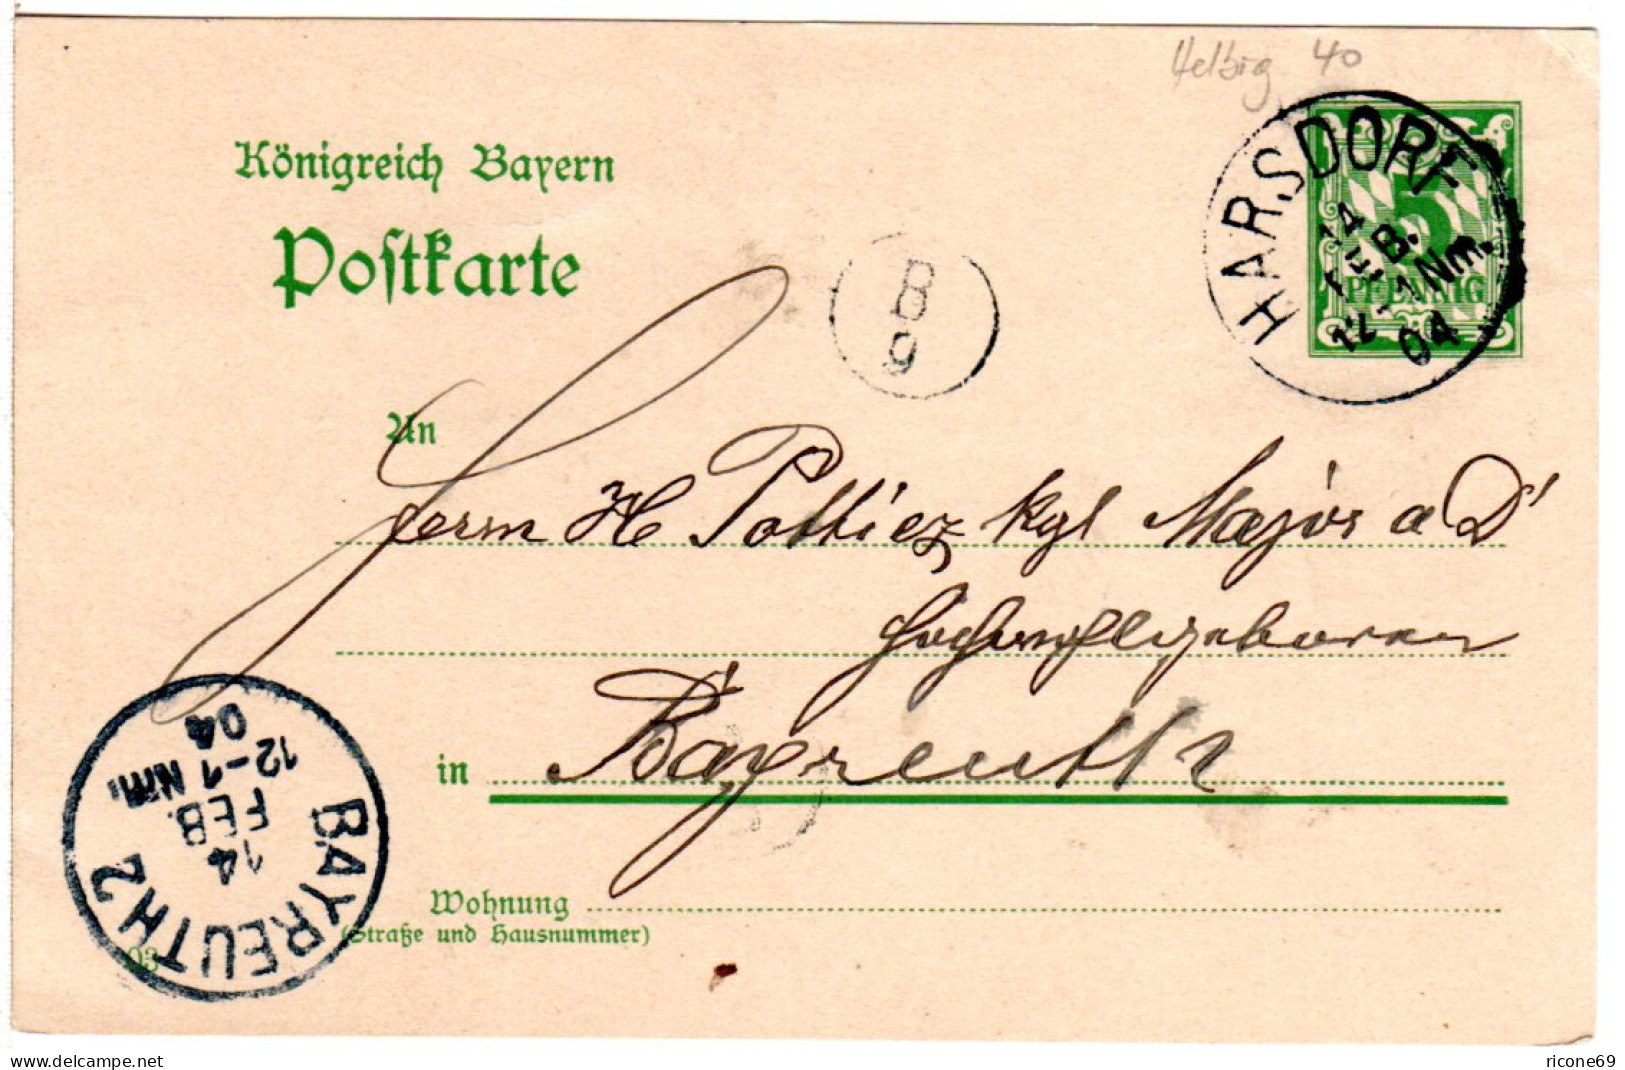 Helbig 40
Königreich Bayern
Postkarte
HARSDORF
14
FEB.
12-1 Nm.
04
5
PFENNIG
B
9
An
Herrn H Pottiez kgl Major a D
Hochwohlgeboren
in Bayreuth
BAYREUTH 2
14
FEB.
12-1 Nm.
04
Wohnung
(Straße und Hausnummer)
03
www.delcampe.net
ricone69